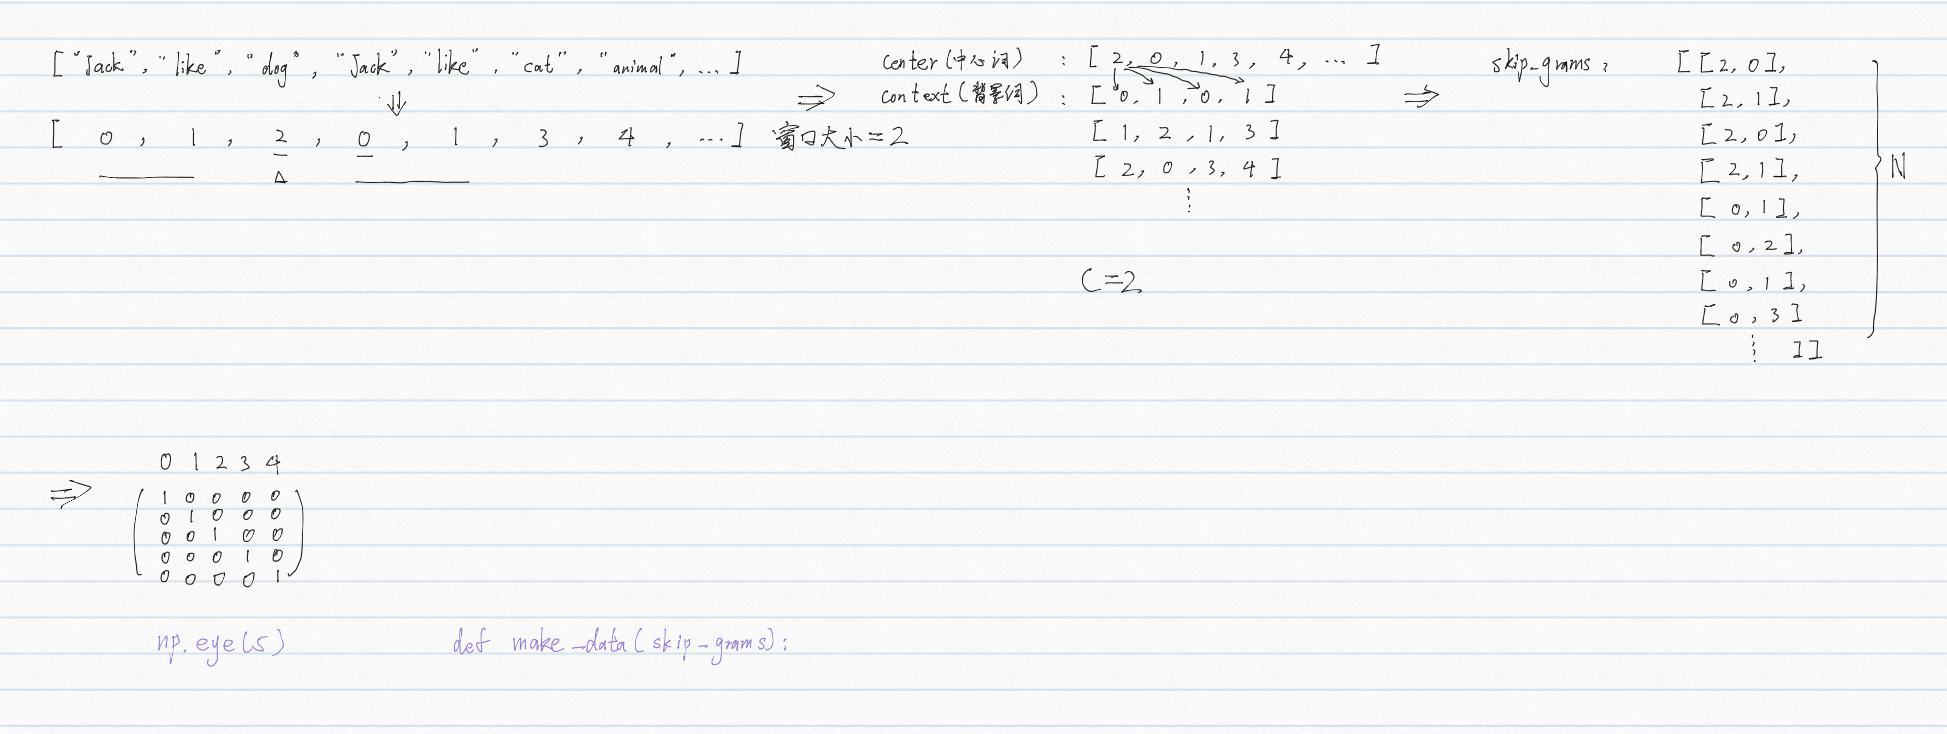 ["Jack", "like", "dog", "Jack", "like", "cat", "animal", ...]
⇓
[ 0, 1, 2, 0, 1, 3, 4, ...] 窗口大小=2
Δ
⇒
center(中心词) : [ 2, 0, 1, 3, 4, ... ]
context(背景词) : [ 0, 1, 0, 1 ]
[ 1, 2, 1, 3 ]
[ 2, 0, 3, 4 ]
⋮
C=2
⇒
skip_grams: [[2, 0],
[2, 1],
[2, 0],
[2, 1],
[0, 1],
[0, 2],
[0, 1],
[0, 3]
⋮ ]]
N
0 1 2 3 4
⇒
1 0 0 0 0
0 1 0 0 0
0 0 1 0 0
0 0 0 1 0
0 0 0 0 1
np.eye(5)
def make_data(skip_grams):